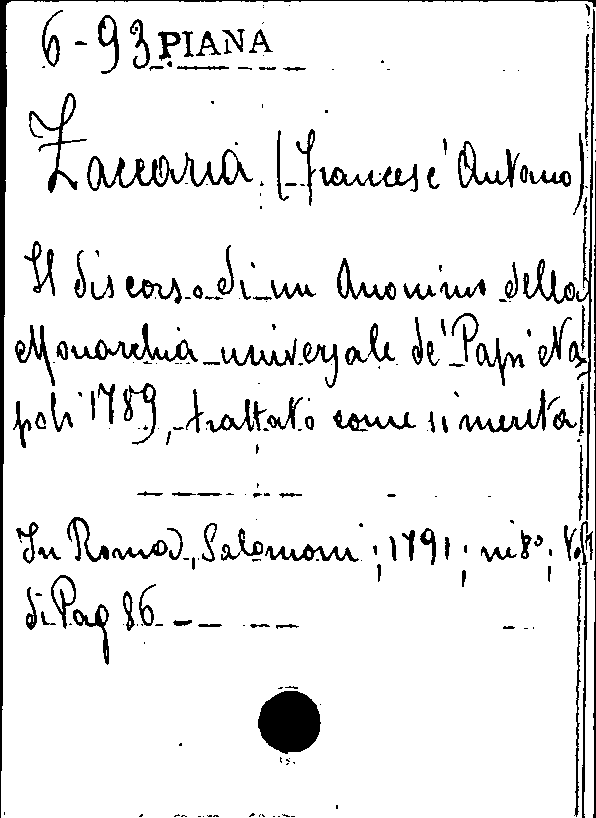 6-93 PIANA
Zaccaria (Francesc' Antonio)
Il discorso di un Anonimo della
Monarchia universale de' Papi Na
poli 1789, trattato come si merita
In Roma, Salomoni; 1791; in 8°; Vol 1
di Pag 86